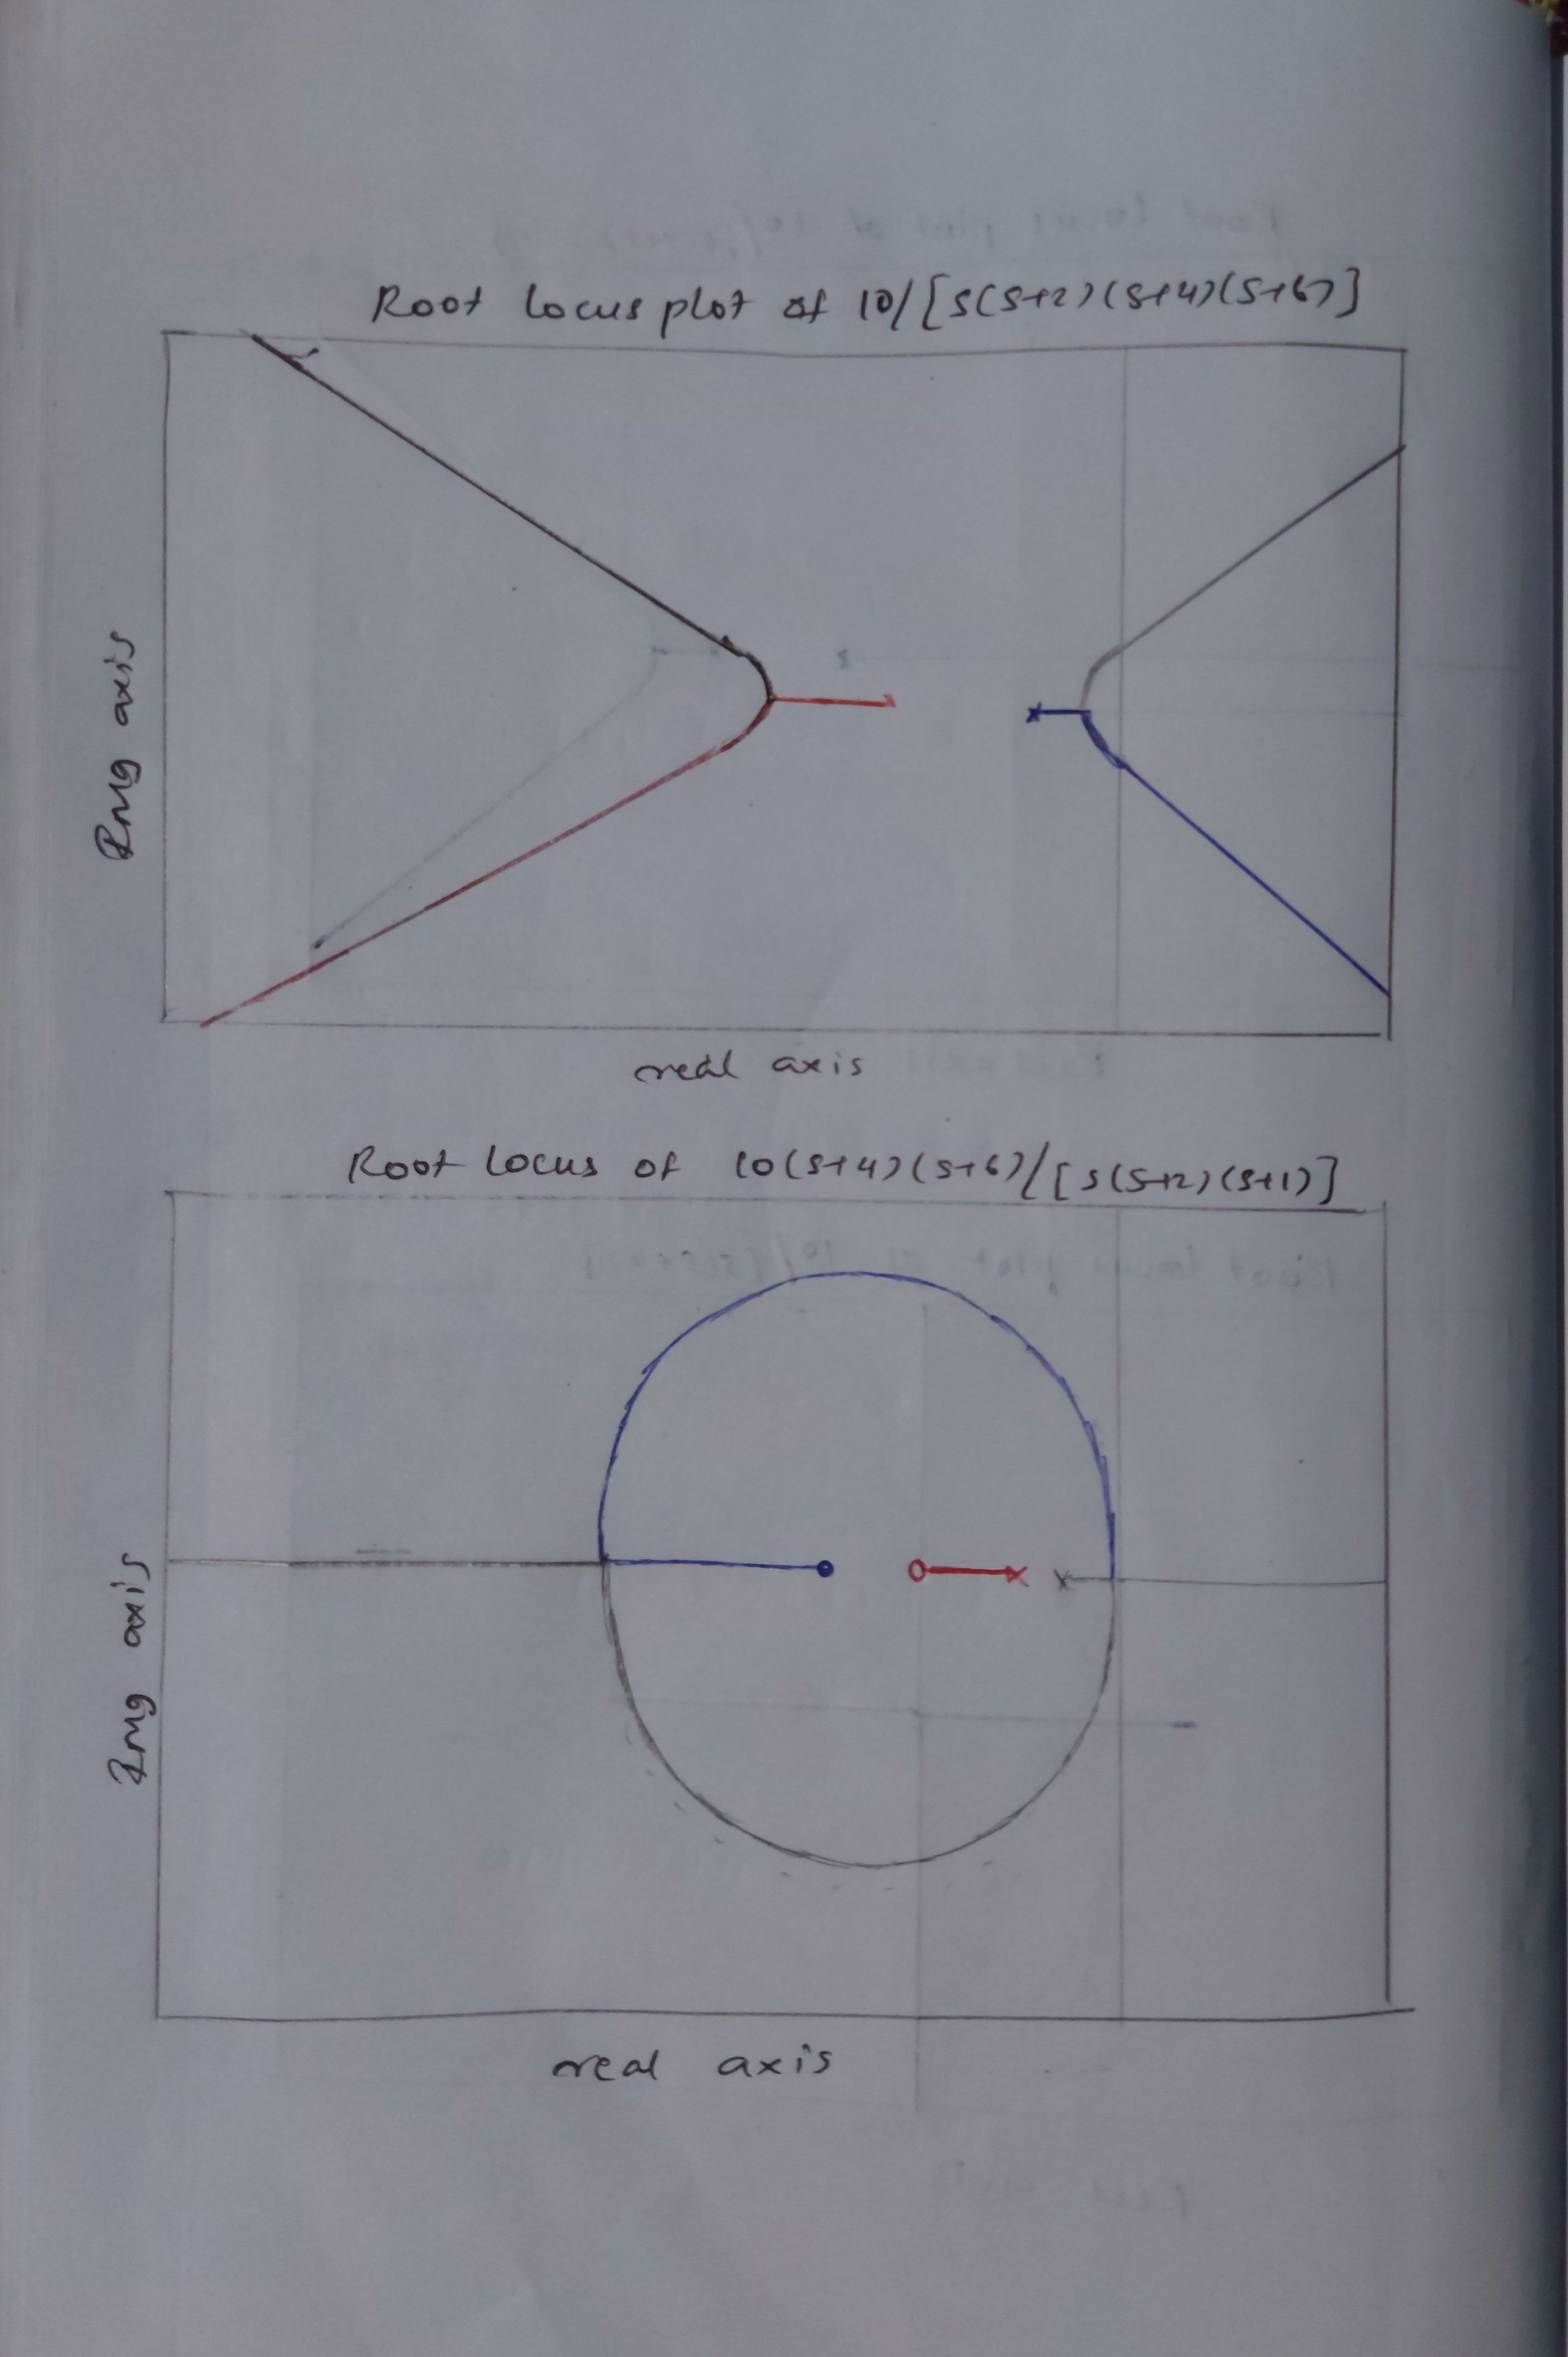 Root locus plot of 10/[s(s+2)(s+4)(s+6)]
Img axis
real axis
Root locus of 10(s+4)(s+6)/[s(s+2)(s+1)]
Img axis
real axis